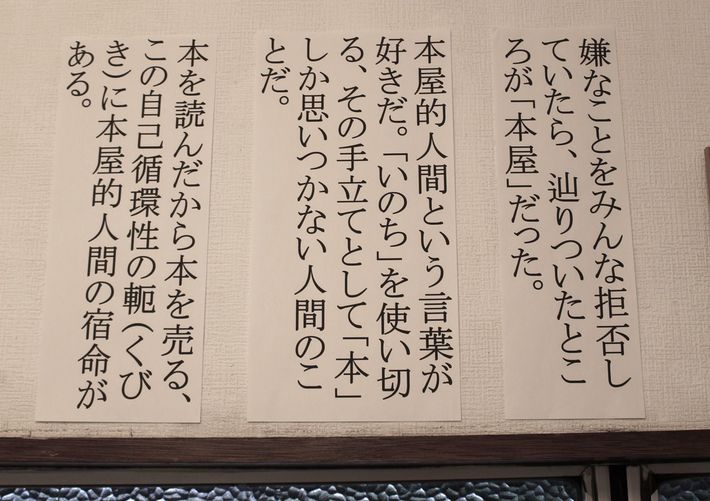 嫌なことをみんな拒否し
ていたら、辿りついたとこ
ろが「本屋」だった。
本屋的人間という言葉が
好きだ。「いのち」を使い切
る、その手立てとして「本」
しか思いつかない人間のこ
とだ。
本を読んだから本を売る、
この自己循環性の軛(くび
き)に本屋的人間の宿命が
ある。